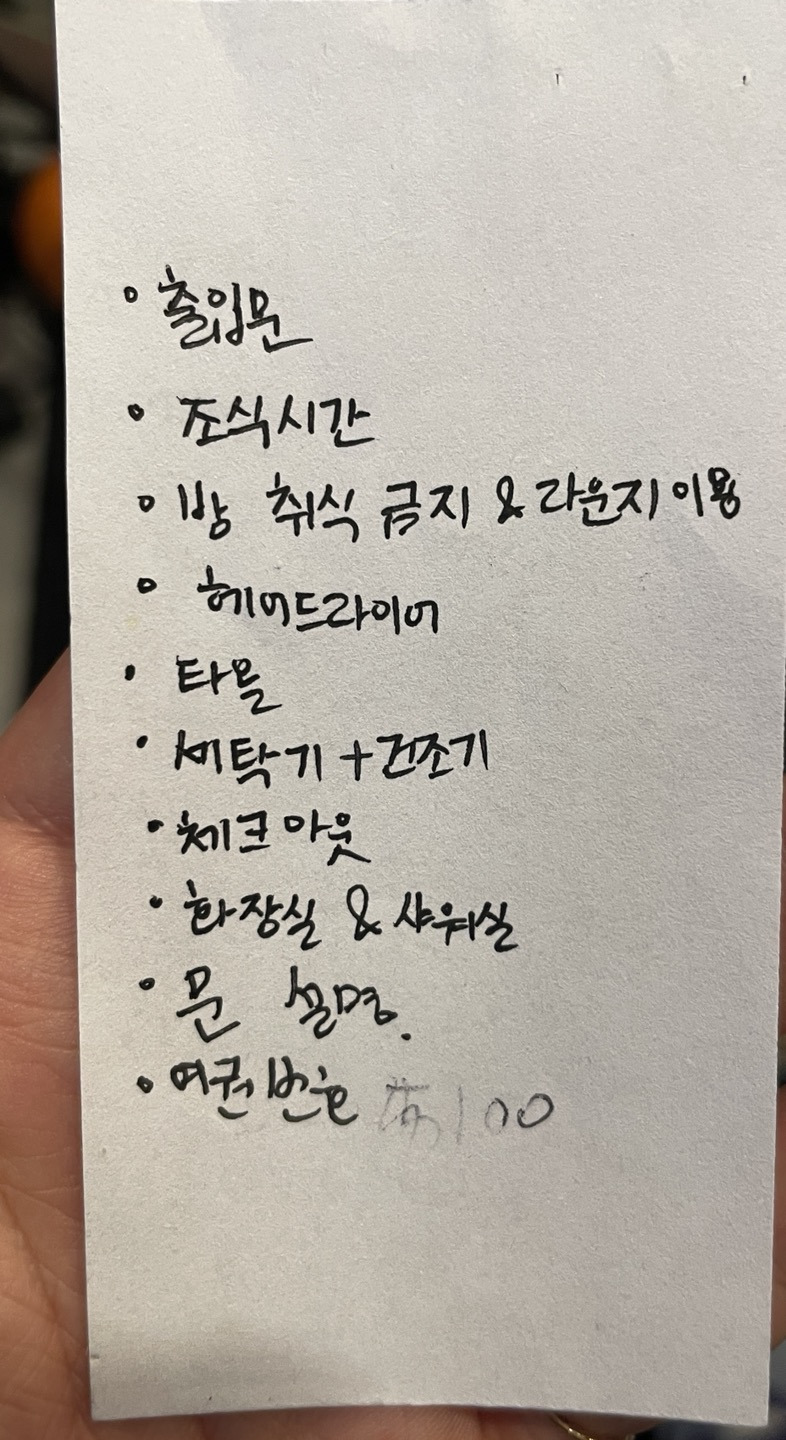 • 출입문
• 조식시간
• 방 취식 금지 & 라운지 이용
• 헤어드라이어
• 타올
• 세탁기 + 건조기
• 체크아웃
• 화장실 & 샤워실
• 문 설명.
• 여권번호 100